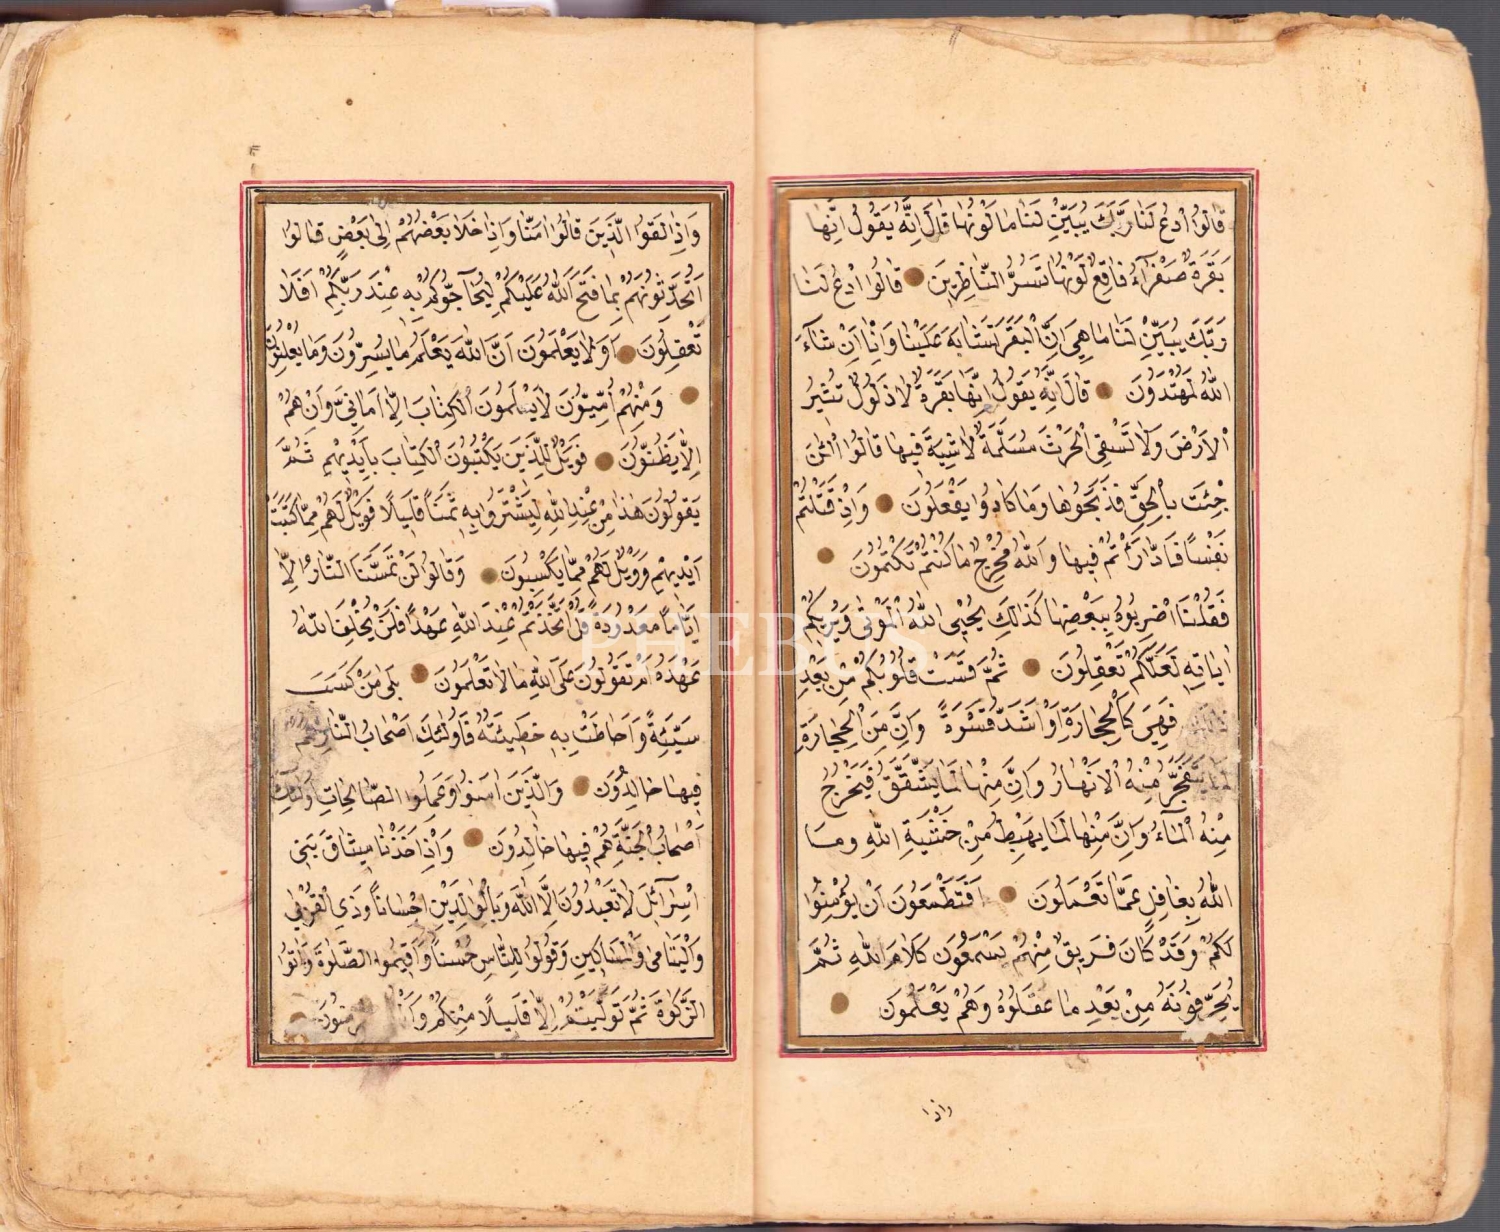 قالُوا ادْعُ لَنا رَبَّكَ يُبَيِّنْ لَنا ما لَوْنُها قالَ اِنَّهُ يَقُولُ اِنَّها
بَقَرَةٌ صَفْرَآءُ فاقِعٌ لَوْنُها تَسُرُّ النّاظِرِينَ قالُوا ادْعُ لَنا
رَبَّكَ يُبَيِّنْ لَنا ما هِيَ اِنَّ الْبَقَرَ تَشابَهَ عَلَيْنا وَاِنّا اِنْ شآءَ
اللّٰهُ لَمُهْتَدُونَ قالَ اِنَّهُ يَقُولُ اِنَّها بَقَرَةٌ لا ذَلُولٌ تُثِيرُ
الْاَرْضَ وَلا تَسْقِى الْحَرْثَ مُسَلَّمَةٌ لا شِيَةَ فِيها قالُوا الْئٰنَ
جِئْتَ بِالْحَقِّ فَذَبَحُوها وَما كادُوا يَفْعَلُونَ وَاِذْ قَتَلْتُمْ
نَفْساً فَادّارَأْتُمْ فِيها وَاللّٰهُ مُخْرِجٌ ما كُنْتُمْ تَكْتُمُونَ
فَقُلْنا اضْرِبُوهُ بِبَعْضِها كَذٰلِكَ يُحْيِى اللّٰهُ الْمَوْتٰى وَيُرِيكُمْ
اٰياتِهِ لَعَلَّكُمْ تَعْقِلُونَ ثُمَّ قَسَتْ قُلُوبُكُمْ مِنْ بَعْدِ
فَهِيَ كَالْحِجارَةِ اَوْ اَشَدُّ قَسْوَةً وَاِنَّ مِنَ الْحِجارَةِ
لَما يَتَفَجَّرُ مِنْهُ الْاَنْهارُ وَاِنَّ مِنْها لَما يَشَّقَّقُ فَيَخْرُجُ
مِنْهُ الْمآءُ وَاِنَّ مِنْها لَما يَهْبِطُ مِنْ خَشْيَةِ اللّٰهِ وَما
اللّٰهُ بِغافِلٍ عَمّا تَعْمَلُونَ اَفَتَطْمَعُونَ اَنْ يُؤْمِنُوا
لَكُمْ وَقَدْ كانَ فَرِيقٌ مِنْهُمْ يَسْمَعُونَ كَلامَ اللّٰهِ ثُمَّ
يُحَرِّفُونَهُ مِنْ بَعْدِ ما عَقَلُوهُ وَهُمْ يَعْلَمُونَ
واذا
وَاِذا لَقُوا الَّذِينَ قالُوا اٰمَنّا وَاِذا خَلا بَعْضُهُمْ اِلٰى بَعْضٍ قالُوا
اَتُحَدِّثُونَهُمْ بِما فَتَحَ اللّٰهُ عَلَيْكُمْ لِيُحآجُّوكُمْ بِهِ عِنْدَ رَبِّكُمْ اَفَلا
تَعْقِلُونَ اَوَلا يَعْلَمُونَ اَنَّ اللّٰهَ يَعْلَمُ ما يُسِرُّونَ وَما يُعْلِنُونَ
وَمِنْهُمْ اُمِّيُّونَ لا يَعْلَمُونَ الْكِتابَ اِلّا اَمانِيَّ وَاِنْ هُمْ
اِلّا يَظُنُّونَ فَوَيْلٌ لِلَّذِينَ يَكْتُبُونَ الْكِتابَ بِاَيْدِيهِمْ ثُمَّ
يَقُولُونَ هٰذا مِنْ عِنْدِ اللّٰهِ لِيَشْتَرُوا بِهِ ثَمَناً قَلِيلًا فَوَيْلٌ لَهُمْ مِمّا كَتَبَتْ
اَيْدِيهِمْ وَوَيْلٌ لَهُمْ مِمّا يَكْسِبُونَ وَقالُوا لَنْ تَمَسَّنَا النّارُ اِلّا
اَيّاماً مَعْدُودَةً قُلْ اَتَّخَذْتُمْ عِنْدَ اللّٰهِ عَهْداً فَلَنْ يُخْلِفَ اللّٰهُ
عَهْدَهُ اَمْ تَقُولُونَ عَلَى اللّٰهِ ما لا تَعْلَمُونَ بَلٰى مَنْ كَسَبَ
سَيِّئَةً وَاَحاطَتْ بِهِ خَطِيئَتُهُ فَاُولٰئِكَ اَصْحابُ النّارِ هُمْ
فِيها خالِدُونَ وَالَّذِينَ اٰمَنُوا وَعَمِلُوا الصّالِحاتِ اُولٰئِكَ
اَصْحابُ الْجَنَّةِ هُمْ فِيها خالِدُونَ وَاِذْ اَخَذْنا مِيثاقَ بَنِي
اِسْرآئِلَ لا تَعْبُدُونَ اِلَّا اللّٰهَ وَبِالْوالِدَيْنِ اِحْساناً وَذِي الْقُرْبٰى
وَالْيَتامٰى وَالْمَساكِينِ وَقُولُوا لِلنّاسِ حُسْناً وَاَقِيمُوا الصَّلٰوةَ وَاٰتُوا
الزَّكٰوةَ ثُمَّ تَوَلَّيْتُمْ اِلّا قَلِيلًا مِنْكُمْ
PHEBUS